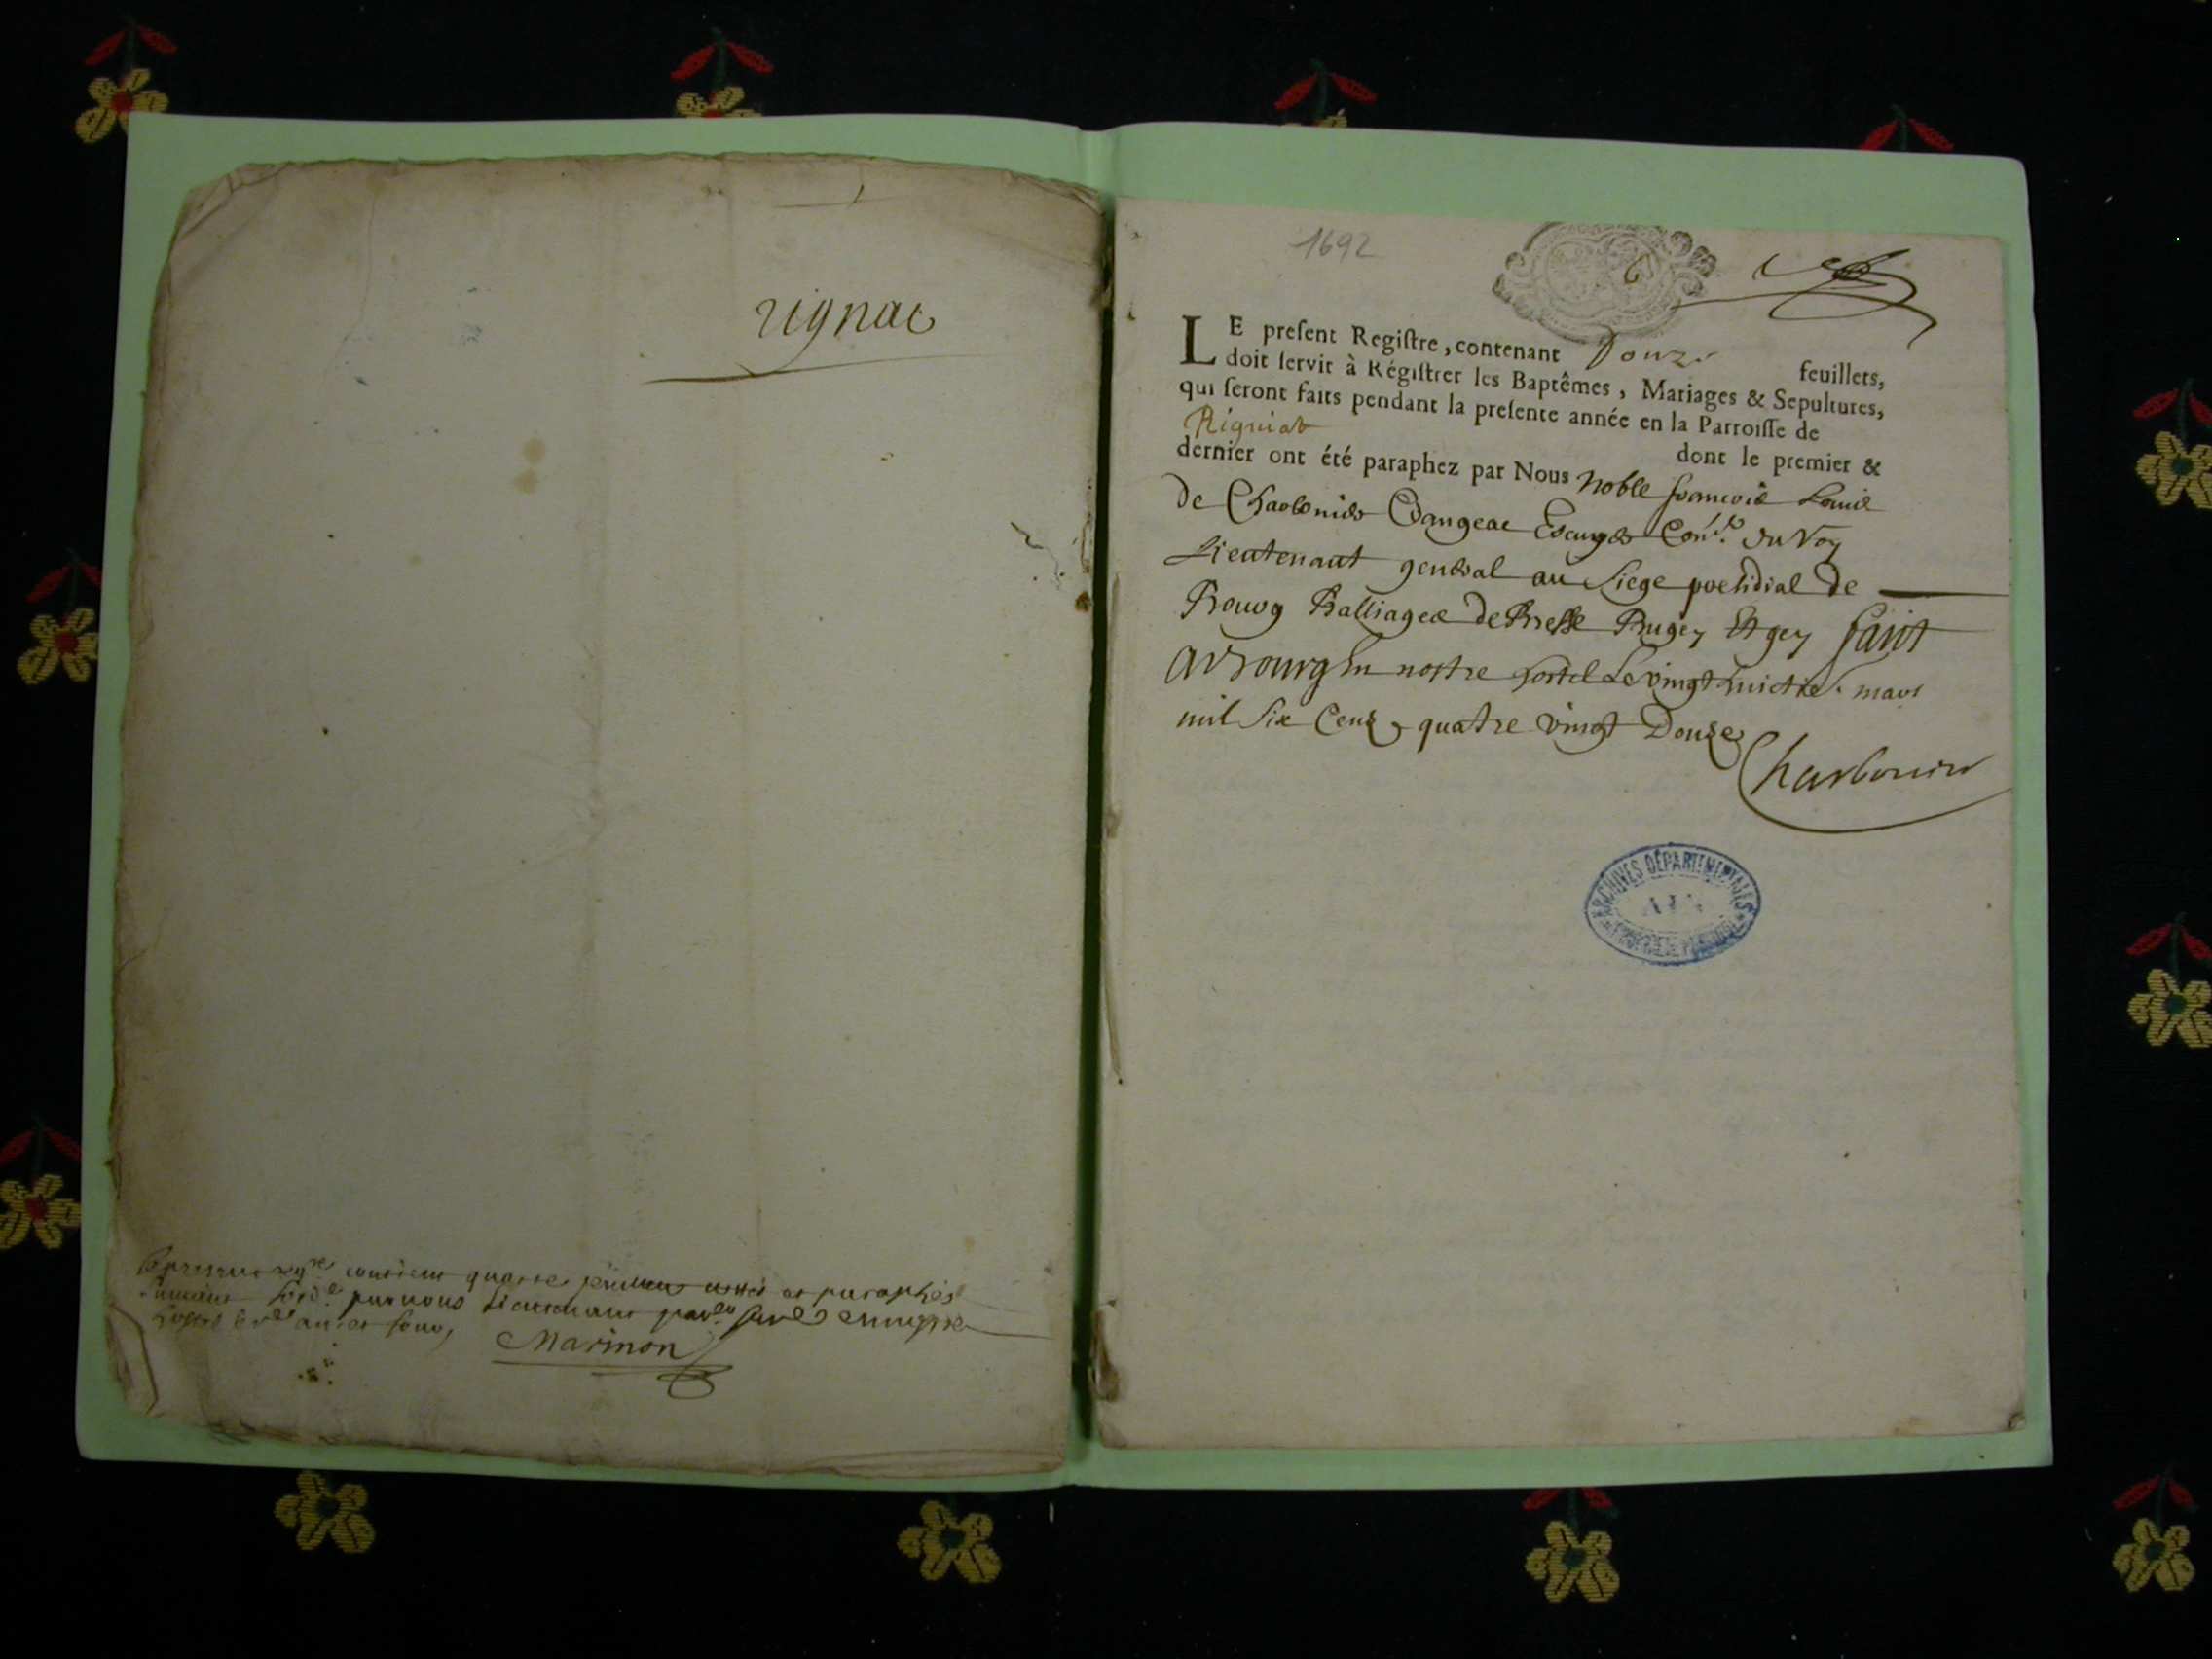 rignac
contient quatre et paraphés
par nous Lieutenant
Marinon
1692
LE preſent Regiſtre, contenant Douze feuillets,
doit ſervir à Régiſtrer les Baptêmes, Mariages & Sepultures,
qui ſeront faits pendant la preſente année en la Parroiſſe de
Rigniat dont le premier &
dernier ont été paraphez par Nous Noble françois Louis
de Charbonier Crangeac Escuyer Con.er du Roy
Lieutenant general au Siege presidial de
Bourg Balliages de Bresse Bugey Et gex fait
a Bourg En nostre hostel Le vingt huictie. mars
mil Six Cens quatre vingt Douze
Charbonier
ARCHIVES DÉPARTEMENTALES
AIN